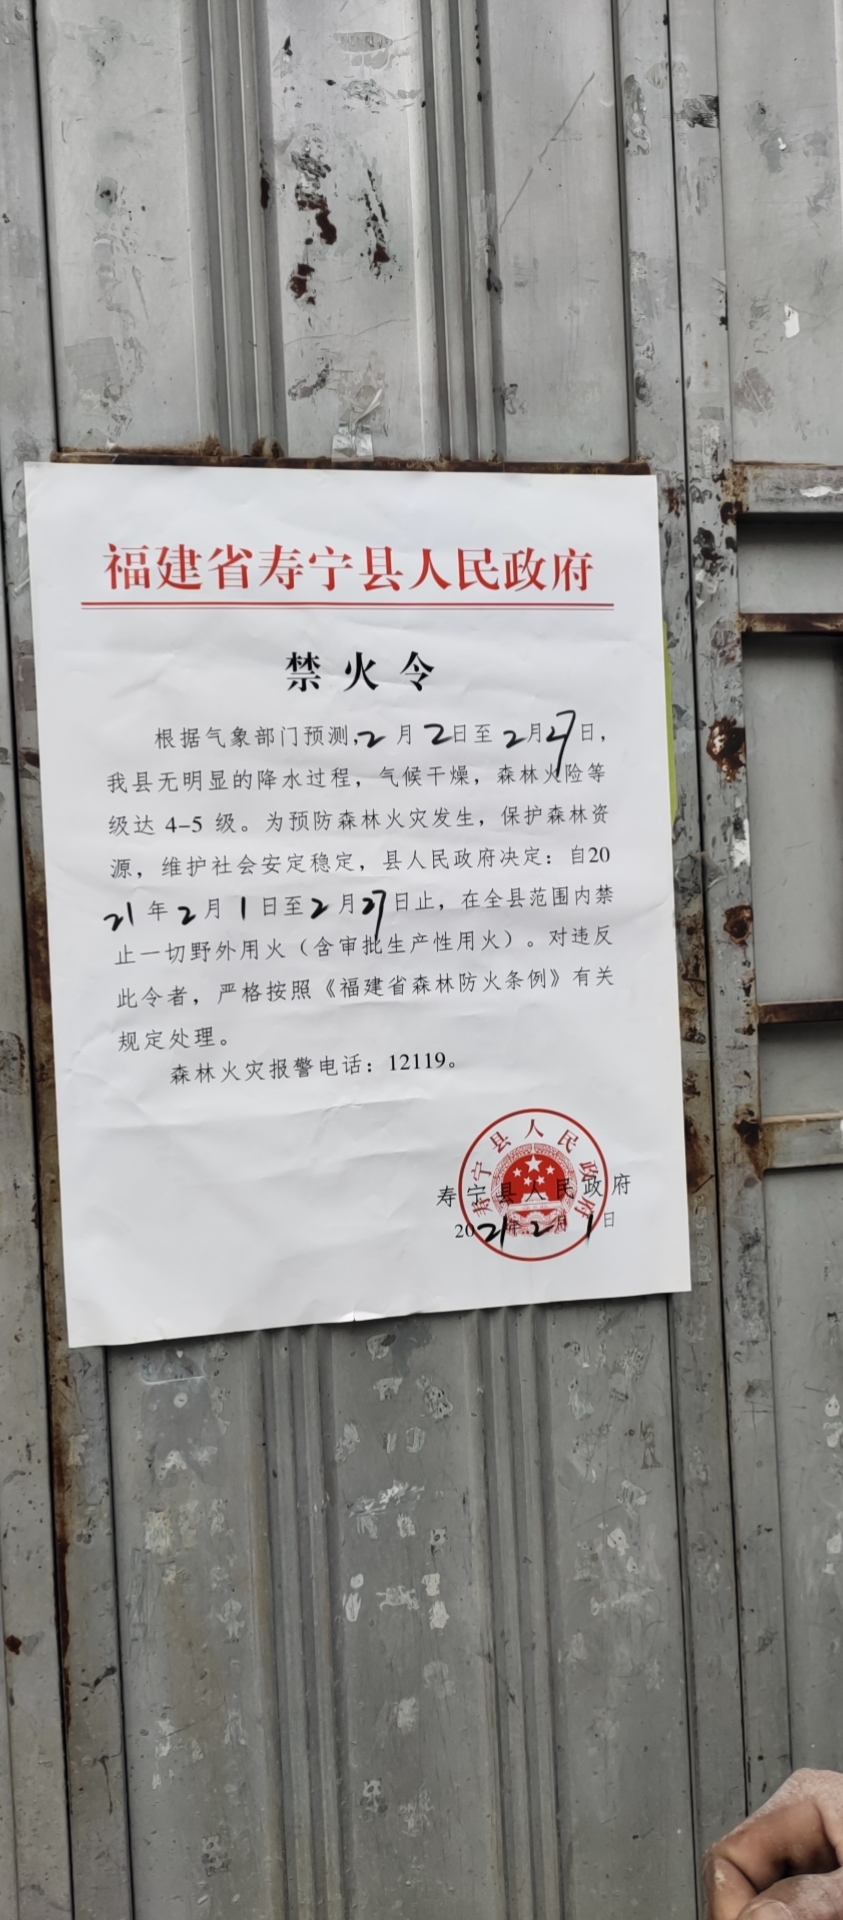 福建省寿宁县人民政府
禁火令
根据气象部门预测,2月2日至2月27日,
我县无明显的降水过程，气候干燥，森林火险等
级达 4-5 级。为预防森林火灾发生，保护森林资
源，维护社会安定稳定，县人民政府决定：自20
21年2月1日至2月27日止，在全县范围内禁
止一切野外用火（含审批生产性用火）。对违反
此令者，严格按照《福建省森林防火条例》有关
规定处理。
森林火灾报警电话：12119。
寿宁县人民政府
寿宁县人民政府
2021年2月1日